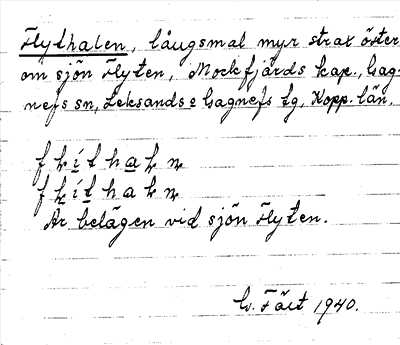 Flythalen, långsmal myr strax öster
om sjön Flyten, Mockfjärds kap., Gag-
nefs sn, Leksands o Gagnefs tg, Kopp. län.
Är belägen vid sjön Flyten.
G. Fält 1940.